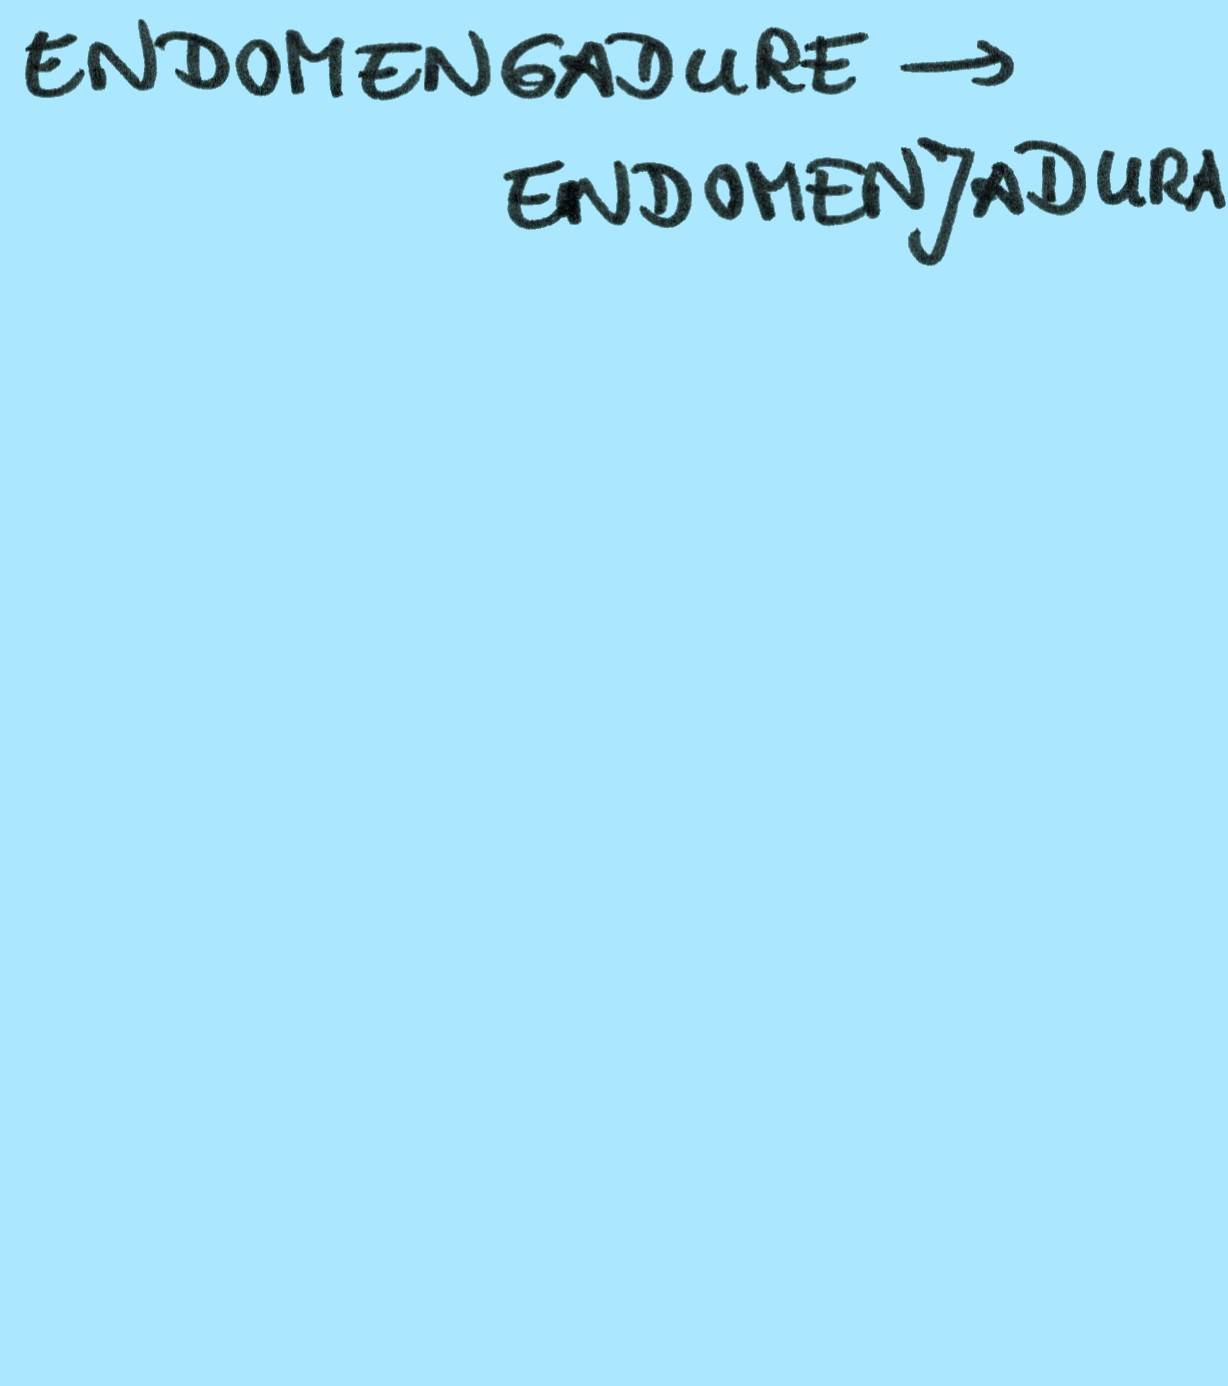 ENDOMENGADURE →
ENDOMENJADURA